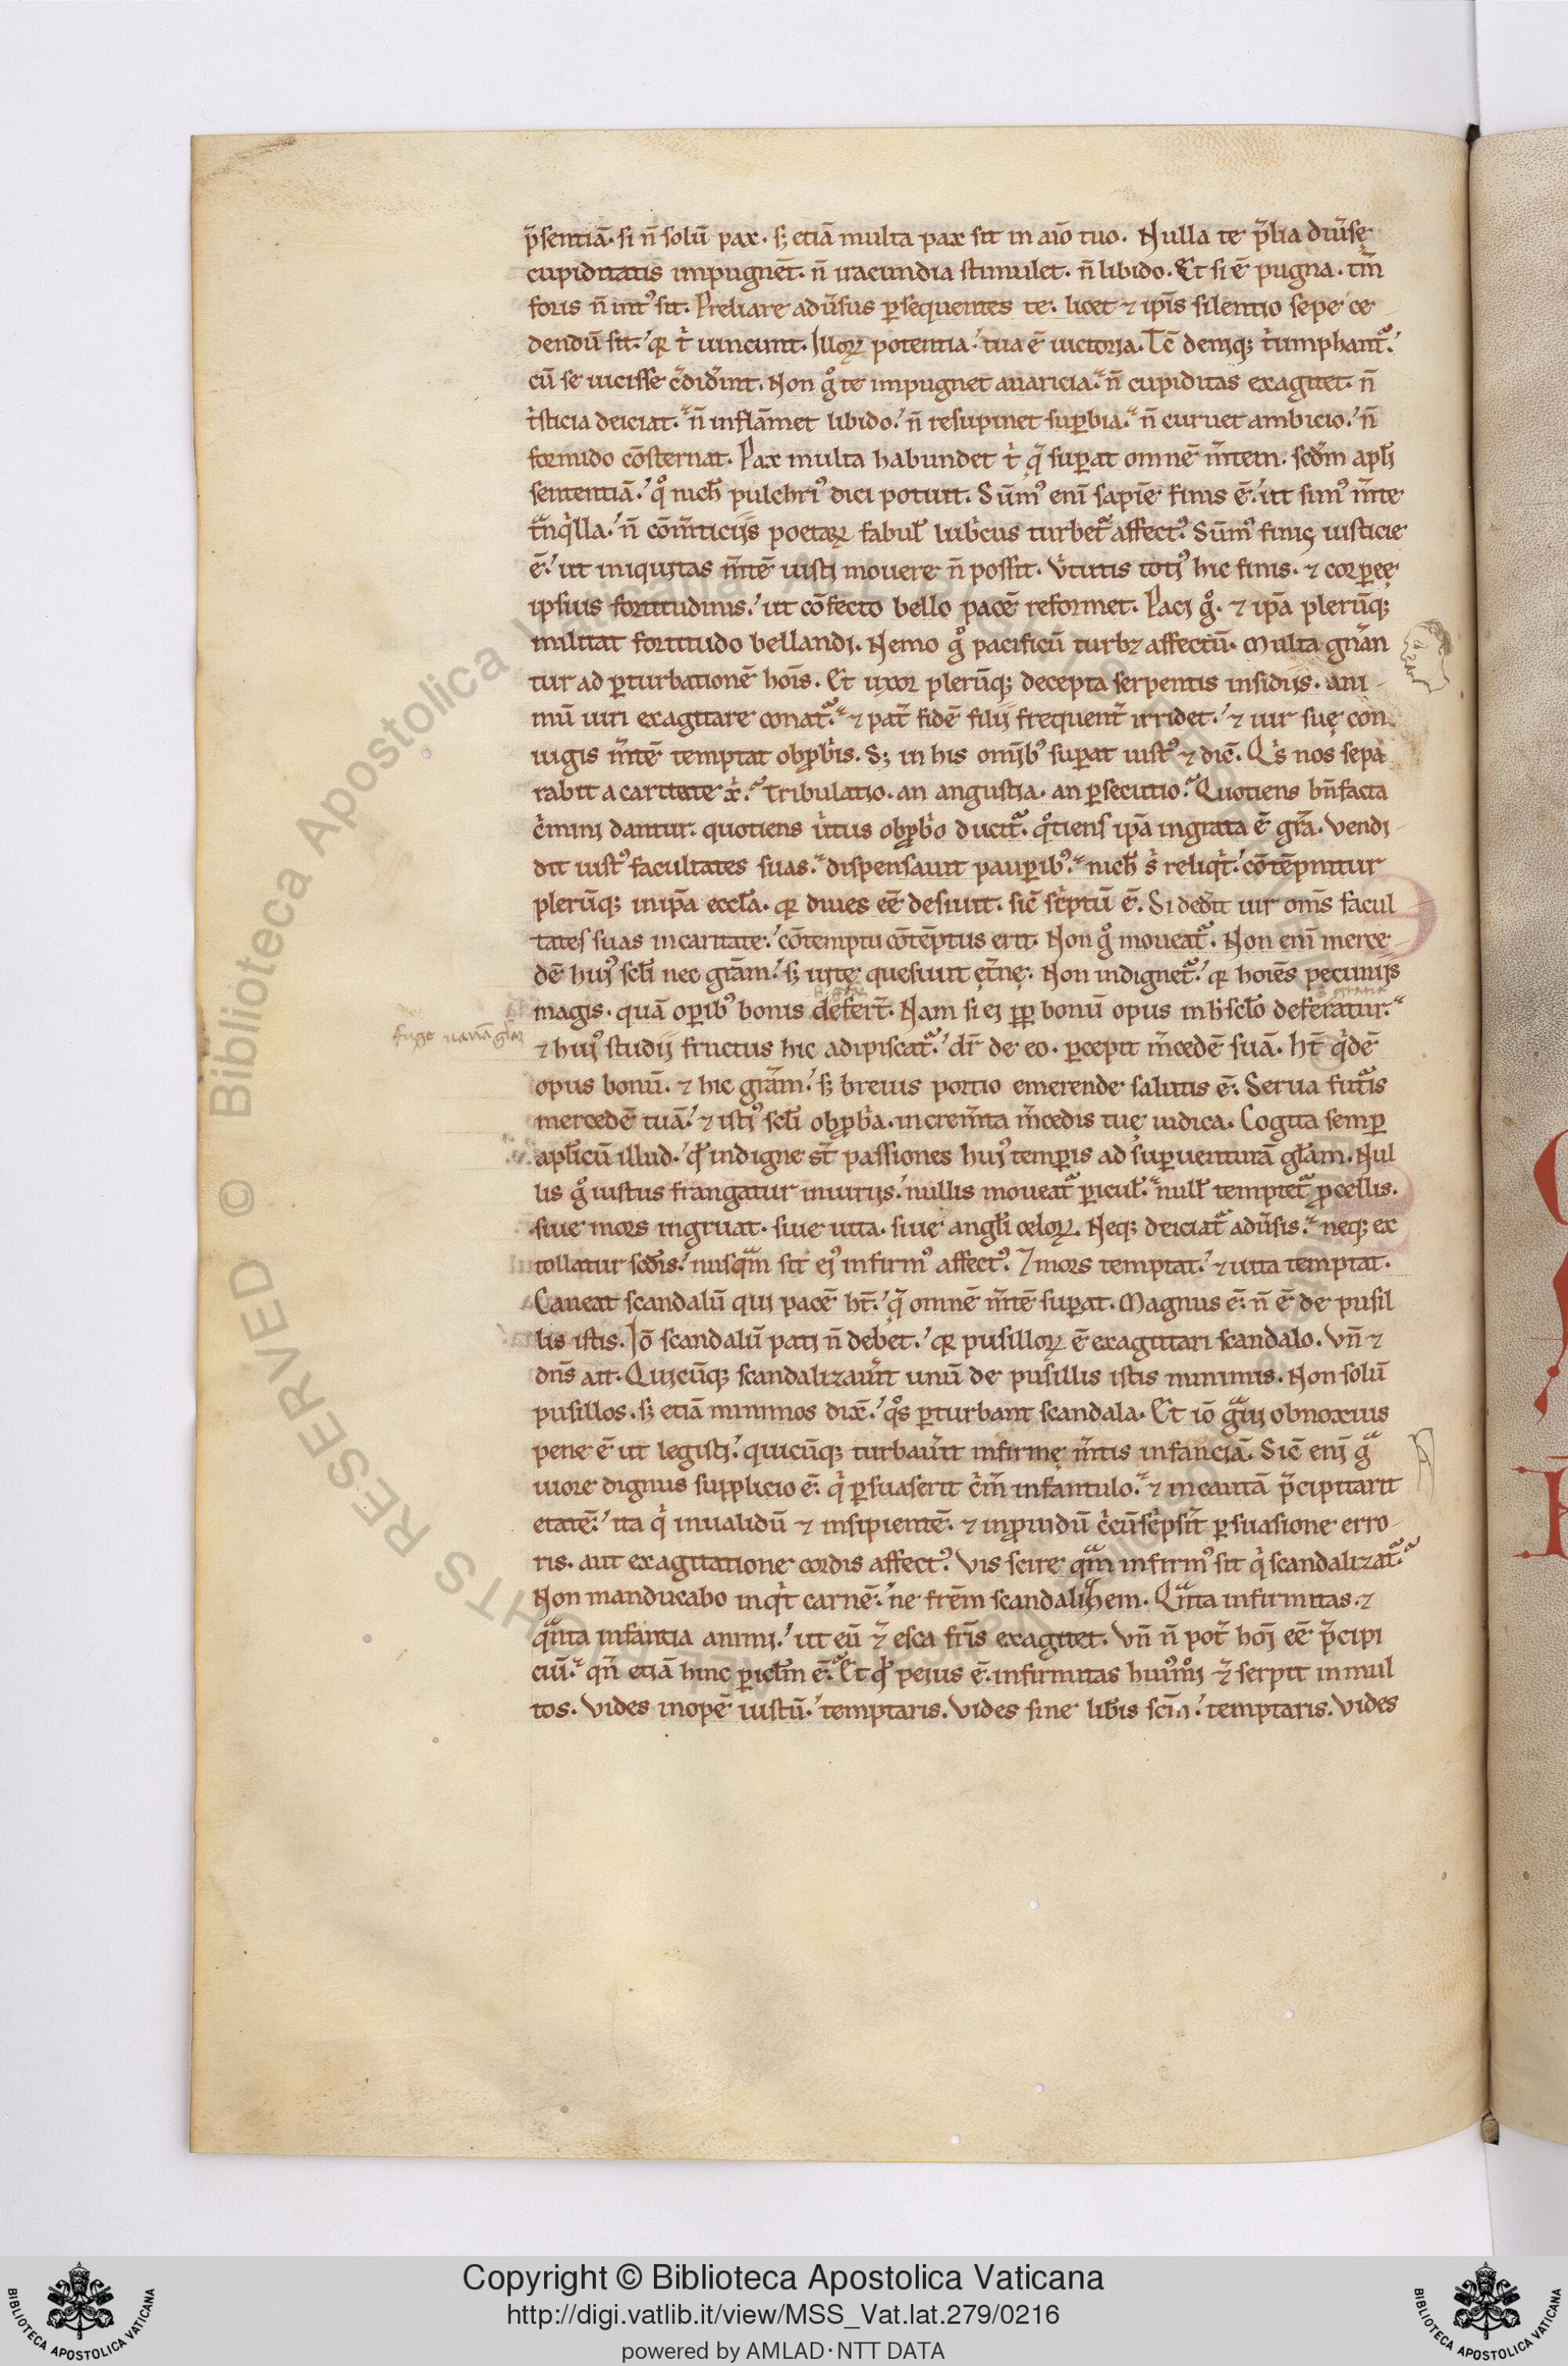 p̄sentiā. si n̄ solū pax. sꝫ etiā multa pax sit in aīo tuo. Nulla te p̄lia diu͛sę
cupiditatis impugnēt. n̄ iracundia stimulet. n̄ libido. Et si ē pugna. tm̄
foris n̄ intꝰ sit. Preliare adu͛sus ꝑsequentes te. licet ⁊ ip̄is silentio sepe ce
dendū sit. qr tⁱ uincunt. Illoꝝ potentia. tua ē uictoria. Tc̄ deniqꝫ tⁱumphant᷑.
cū se uicisse c͛did͛int. Non gͦ te impugnet auaricia. n̄ cupiditas exagitet. n̄
tⁱsticia deiciat. n̄ inflāmet libido. n̄ resupinet suꝑbia. n̄ curuet ambicio. n̄
formido cōsternat. Pax multa habundet tⁱ q̄ suꝑat omnē m̄tem. scd̄m apl̄i
sententiā. qͦ nich̄ pulchriꝰ dici potuit. Sūmꝰ enī sapīe finis ē. ut simꝰ m̄te
tᵃnqⁱlla. n̄ cōm̄ticijs poetaꝝ fabul̄ lubⁱcus turbet᷑ affectꝰ. Sūmꝰ finis iusticie
ē. ut iniquitas m̄tē iusti mouere n̄ possit. vⁱtutis totiꝰ hic finis. ⁊ corꝑeę
ipsius fortitudinis. ut cōfecto bello pacē reformet. Paci gͦ. ⁊ ip̄a plerūqꝫ
militat fortitudo bellandi. Nemo gͦ pacificū turbꝫ affectū. Multa gn̄an
tur ad ꝑturbationē hoīs. Et uxor plerūqꝫ decepta serpentis insidijs. ani
mū uiri exagitare conat᷑. ⁊ pat͛ fidē filij frequent͛ irridet. ⁊ uir suę con
iugis m̄tē temptat obꝓbⁱis. Sꝫ in his omībꝰ suꝑat iustꝰ ⁊ dic̄. Qⁱs nos sepa
rabit a caritate xⁱ. tribulatio. an angustia. an ꝑsecutio. Quotiens bn̄facta
cⁱmini dantur. quotiens uⁱtus obꝓbⁱo ducit᷑. qͦtiens ip̄a ingrata ē gr̄a. Vendi
dit iustꝰ facultates suas. dispensauit pauꝑibꝰ. nich̄ sⁱ reliqⁱt. cōtēpnitur
plerūqꝫ in ip̄a eccl̄a. qr diues eē desiuit. sic̄ scⁱptū ē. Si ded͛it uir om̄s facul
tates suas in caritate. cōtemptu cōtēptus erit. Non gͦ moueat᷑. Non enī merce
dē huiꝰ scl̄i nec gr̄am. sꝫ uitę quesiuit ęt͛nę. Non indignet᷑. qr hoīes pecunijs
magis. quā oꝑibꝰ bonis defert͛. Nam si ei ꝓp bonū opus in h̄ scl̄o deferatur.
fuge uanā gl̄am
⁊ huiꝰ studij fructus hic adipiscat᷑. dr̄ de eo. ꝑcepit m͛cedē suā. Ht̄ qⁱdē
opus bonū. ⁊ hic gr̄am. sꝫ breuis portio emerende salutis ē. Serua fut᷑is
mercedē tuā. ⁊ istiꝰ scl̄i obꝓbⁱa. increm̄ta m͛cedis tuę iudica. Cogita semꝑ
apl̄icū illud. qd̄ indigne st̄ passiones huiꝰ temꝑis ad suꝑuenturā gl̄am. Nul
lis gͦ iustus frangatur iniurijs. nullis moueat᷑ ꝑicul̄. null̄ temptet᷑ ꝓcellis.
siue mors ingruat. siue uita. siue angl̄i celoꝝ. Neqꝫ deiciat᷑ adu͛sis. neqꝫ ex
tollatur scd̄is. nusqᵃm sit eiꝰ infirmꝰ affectꝰ. ⁊ mors temptat. ⁊ uita temptat.
Caueat scandalū qui pacē ht̄. q̄ omnē m̄tē suꝑat. Magnus ē. n̄ ē de pusil
lis istis. Iō scandalū pati n̄ debet. qr pusilloꝝ ē exagitari scandalo. Vn̄ ⁊
dn̄s ait. Quicūqꝫ scandalizau͛it unū de pusillis istis minimis. Non solū
pusillos. sꝫ etiā minimos dix̄. qͦs ꝑturbant scandala. Et iō gᵃui obnoxius
pene ē ut legisti. quicūqꝫ turbau͛it infirmę m̄tis infanciā. Sic̄ enī gᵃ
uiore dignus supplicio ē. qⁱ ꝑsuaserit cⁱm̄ infantulo. ⁊ incautā p̄cipitarit
etatē. ita qⁱ inualidū ⁊ insipientē. ⁊ inꝓuidū cⁱcūscⁱpsit͛ ꝑsuasione erro
ris. aut exagitatione cordis affectꝰ. Vis scire qᵃm infirmꝰ sit qⁱ scandalizat᷑.
Non manducabo inqⁱt carnē. ne fr̄em scandalizem. Qᵃnta infirmitas. ⁊
qᵃnta infantia animi. ut eū ⁊ esca fr̄is exagitet. Vn̄ n̄ pot͛ hoī eē p̄cipi
ciū. qn̄ etiā hinc ꝑicl̄m ē. Et qd̄ peius ē. infirmitas huiꝰmͦi ⁊ serpit in mul
tos. Vides inopē iustū. temptaris. Vides sine lib͛is scm̄. temptaris. Vides
Copyright © Biblioteca Apostolica Vaticana
http://digi.vatlib.it/view/MSS_Vat.lat.279/0216
powered by AMLAD·NTT DATA
BIBLIOTECA APOSTOLICA VATICANA
BIBLIOTECA APOSTOLICA VATICANA